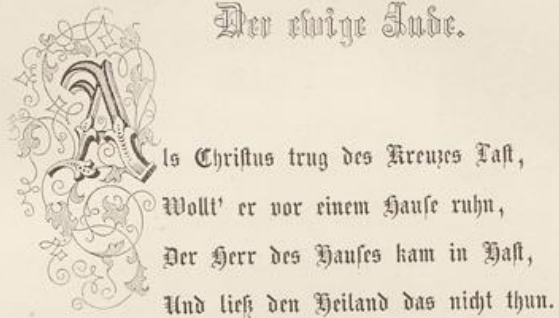 Der ewige Jude.
Als Christus trug des Kreuzes Last,
Wollt' er vor einem Hause ruhn,
Der Herr des Hauses kam in Hast,
Und ließ den Heiland das nicht thun.